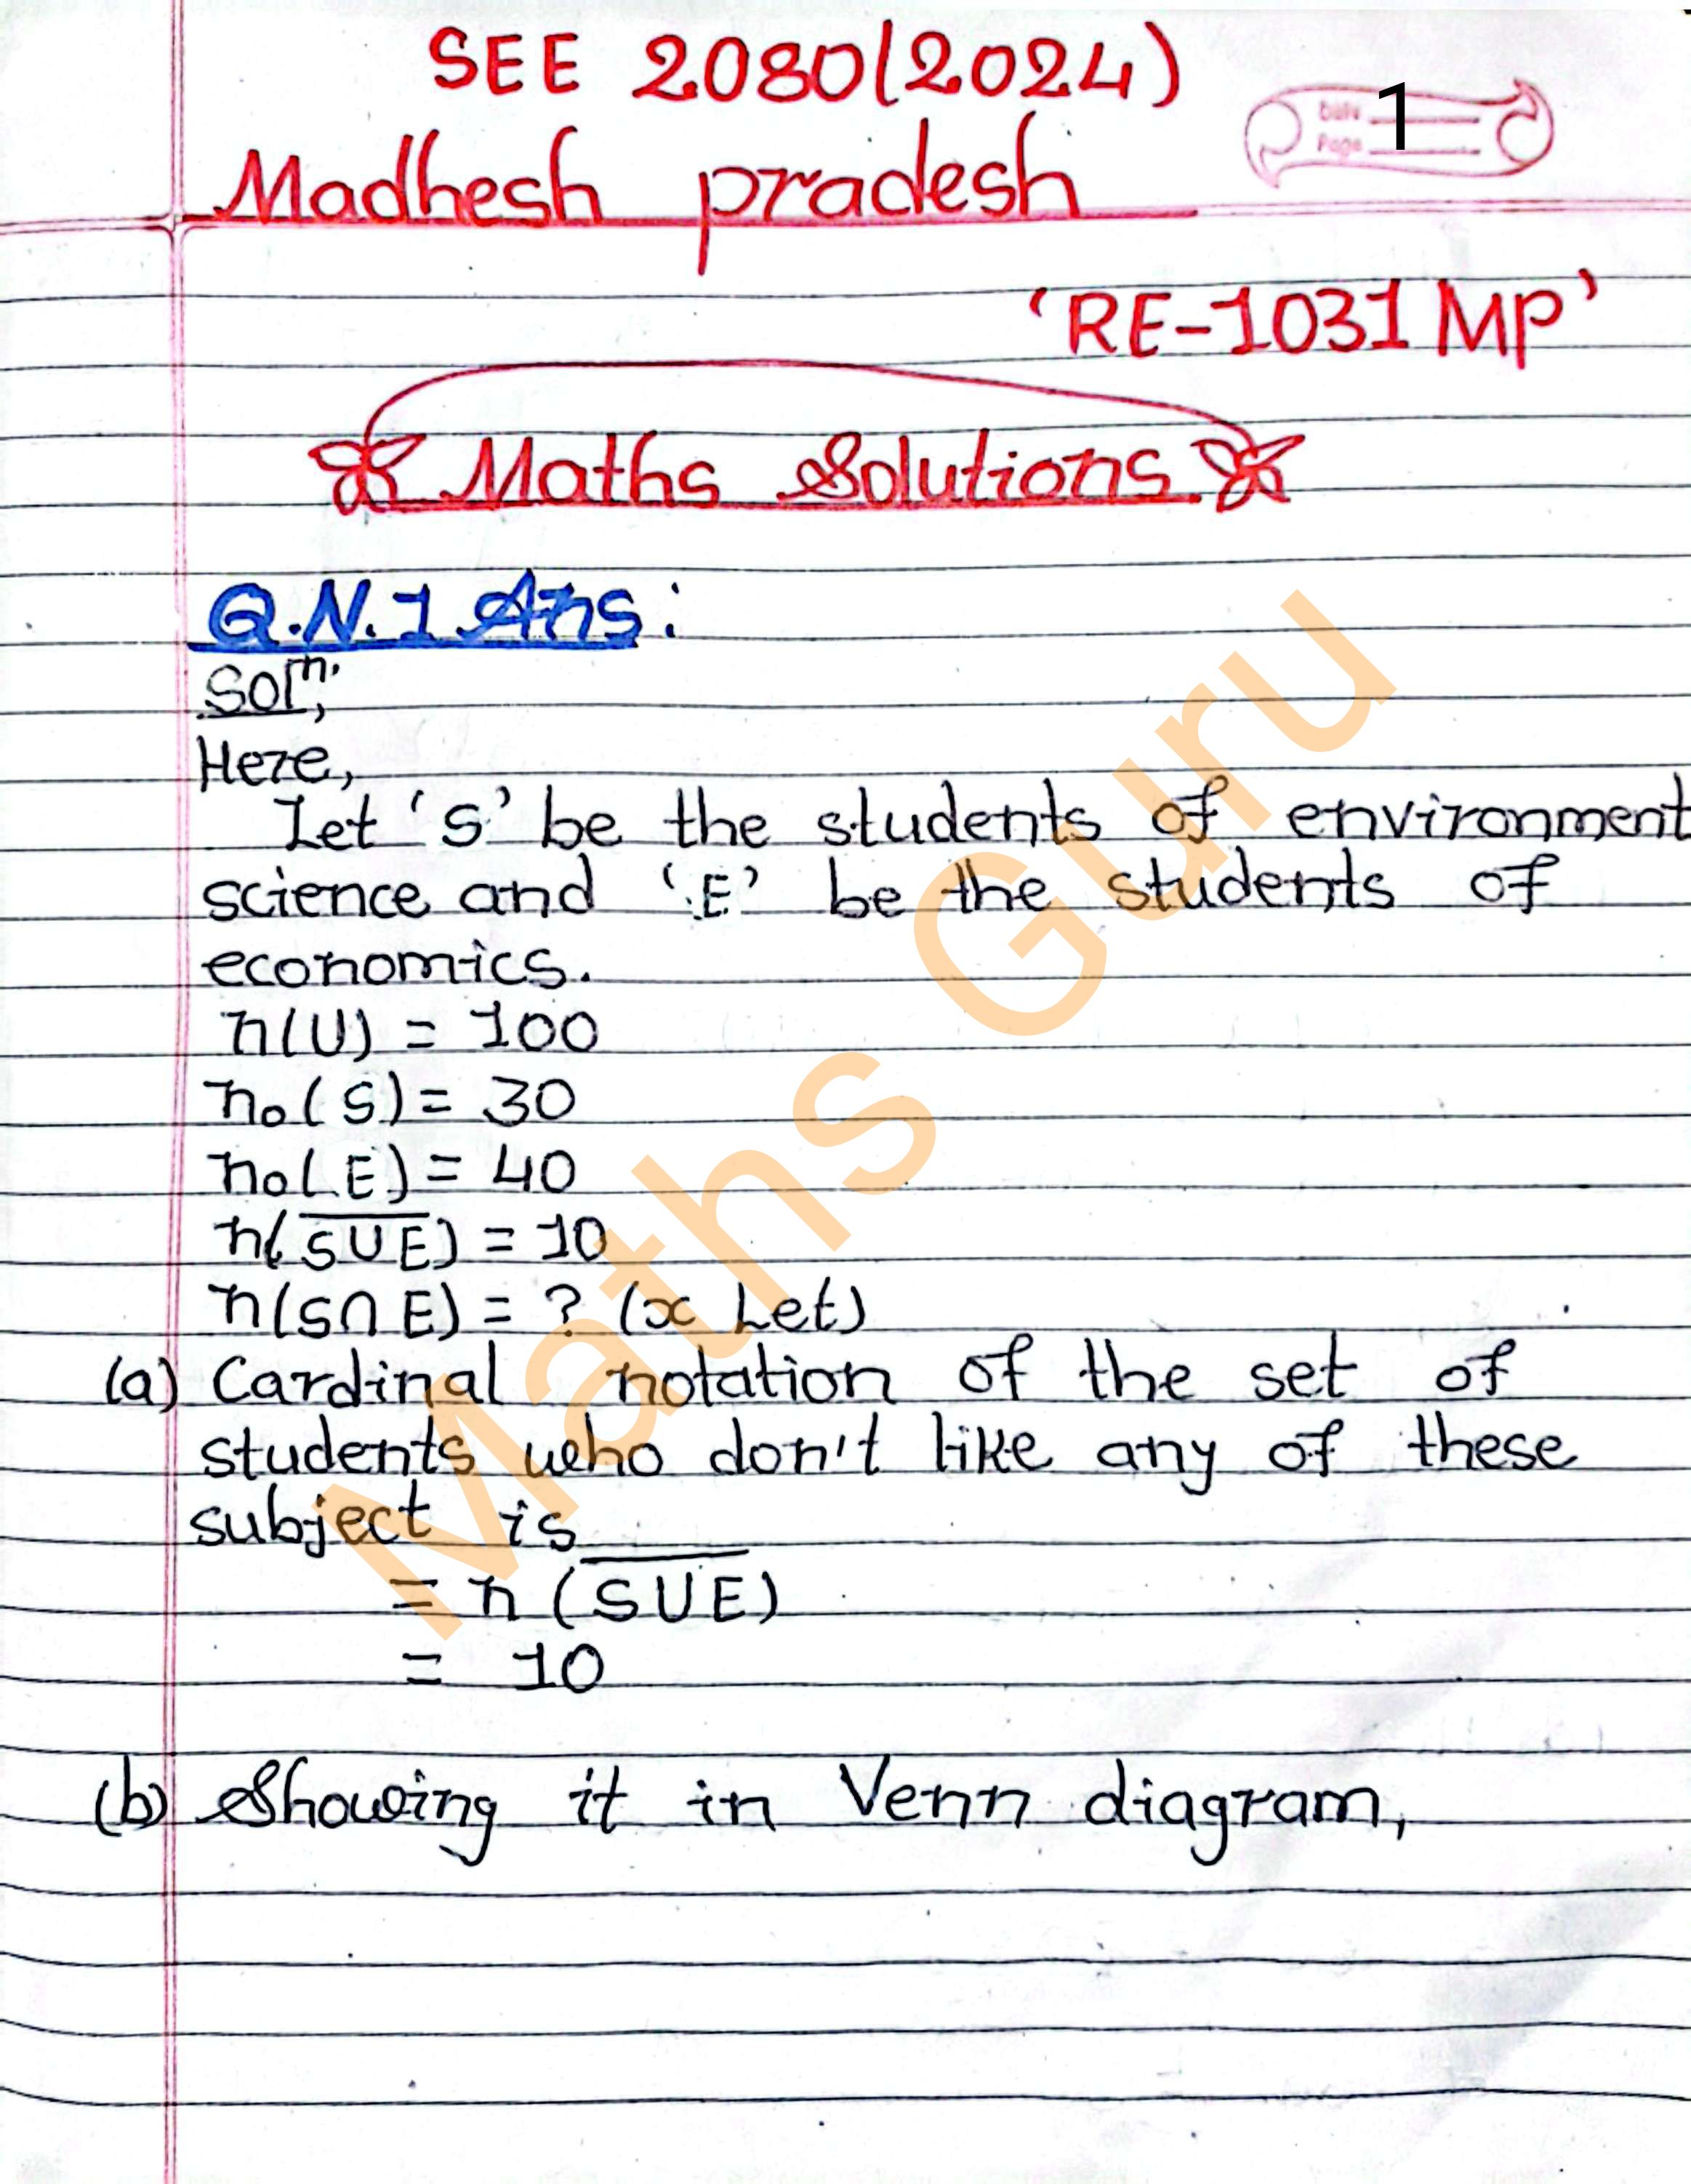 SEE 2080(2024)
Date
Page 1
Madhesh pradesh
'RE-1031 MP'
Maths Solutions
Q.N.1 Ans:
Solⁿ;
Here,
Let 'S' be the students of environment
science and 'E' be the students of
economics.
n(U) = 100
n₀(S) = 30
n₀(E) = 40
n(S̅∪̅E̅) = 10
n(S∩E) = ? (x Let)
(a) Cardinal notation of the set of
students who don't like any of these
subject is
= n (S̅∪̅E̅)
= 10
(b) Showing it in Venn diagram,
Maths Guru